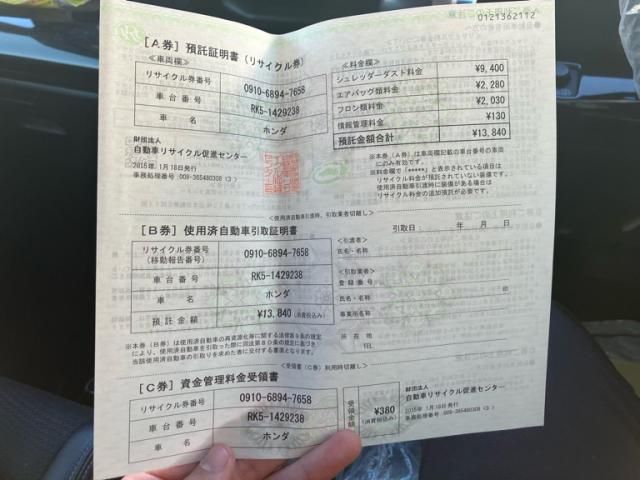 0121362112
［A券］預託証明書（リサイクル券）
≪車両欄≫
リサイクル券番号 0910-6894-7658
車台番号 RK5-1429238
車名 ホンダ
≪料金欄≫
シュレッダーダスト料金 ¥9,400
エアバッグ類料金 ¥2,280
フロン類料金 ¥2,030
情報管理料金 ¥130
預託金額合計 ¥13,840
財団法人
自動車リサイクル促進センター
2015年 1月18日発行
事務処理番号:009-365480308（3）
※本券（A券）は車両欄記載の車台番号の車両
にのみ有効です。
※料金欄で「*****」と表示されている項目は
リサイクル料金が預託されていない装備です。
使用済自動車引渡時に装備がある場合は
リサイクル料金の追加預託が必要です。
＜使用済自動車引渡時、引取業者切離し＞
［B券］使用済自動車引取証明書
引取日： 年 月 日
リサイクル券番号
（移動報告番号） 0910-6894-7658
車台番号 RK5-1429238
車名 ホンダ
預託金額 ¥13,840（消費税込み）
≪引渡者≫
氏名・名称
≪引取業者≫
登録番号
印
氏名・名称
事業所名称
所在地
TEL
※本券（B券）は使用済自動車の再資源化等に関する法律第80条の規定
により、使用済自動車を引取った際に同法第80条の規定に基づき
当該使用済自動車の引取りを求めた者に交付する書面となります。
＜受領書（C券）利用時切離し＞
［C券］資金管理料金受領書
リサイクル券番号 0910-6894-7658
車台番号 RK5-1429238
車名 ホンダ
受領金額 ¥380
（消費税込み）
財団法人
自動車リサイクル促進センター
2015年 1月18日発行